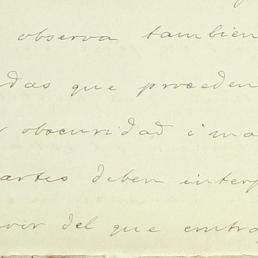 observa tambien
das que proceden
obscuridad i ma
artes deben interp
vir del que contra